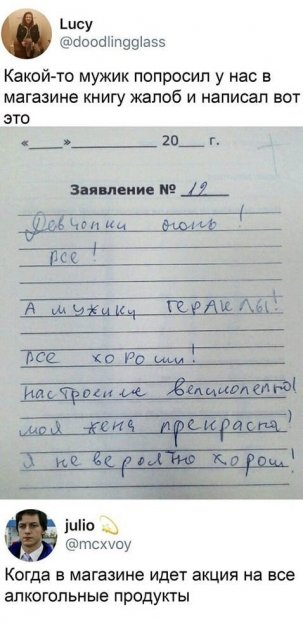 Lucy
@doodlingglass
Какой-то мужик попросил у нас в
магазине книгу жалоб и написал вот
это
«___»__________ 20___ г.
Заявление № 12
Девчонки огонь!
Все!
А мужики ГЕРАКЛЫ!
все хороши!
настроение великолепно!
моя жена прекрасна!
Я невероятно хорош!
julio 💫
@mcxvoy
Когда в магазине идет акция на все
алкогольные продукты